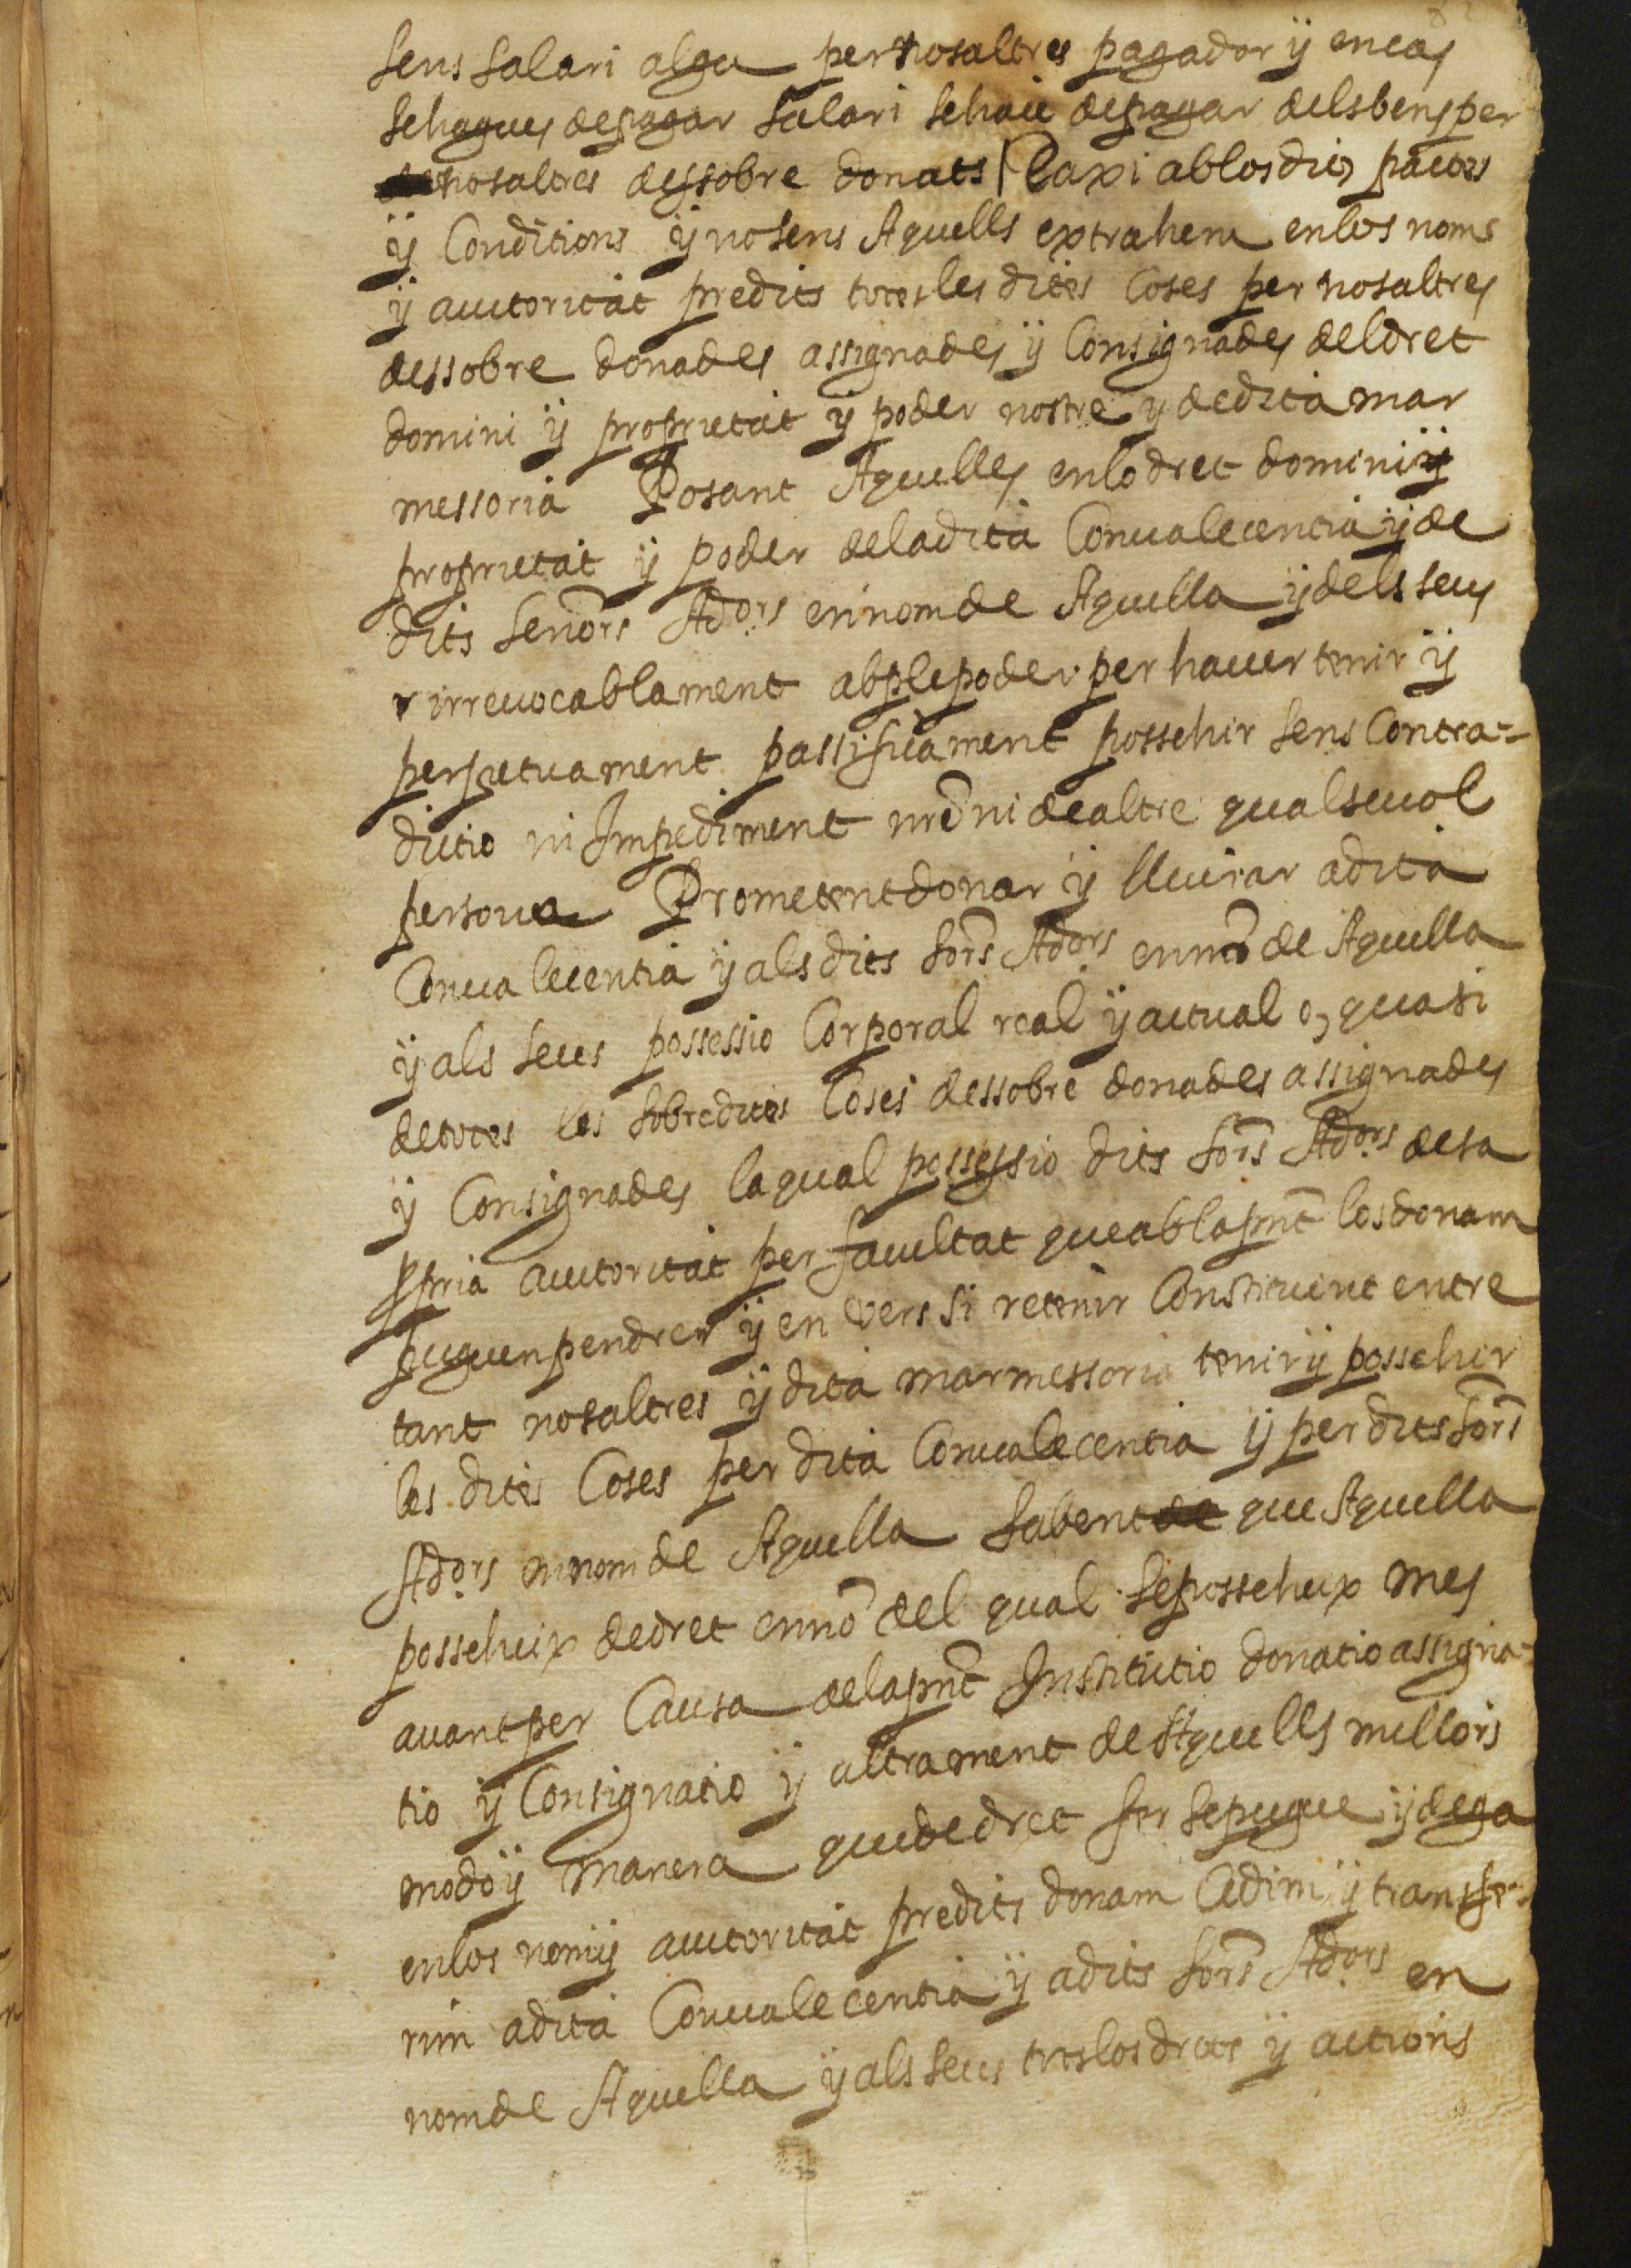 sens salari algu per nosaltres pagador ÿ en cas
se hagues de pagar salari se haie de pagar dels bens per
nosaltres dessobre donats | E axi ab los dits pactes
ÿ Conditions ÿ no sens Aquells extrahem en los noms
ÿ autoritat predits totes les dites Coses per nosaltres
dessobre donades assignades ÿ Consignades del dret
domini ÿ proprietat ÿ poder nostre y de dita mar
messoria Posant Aquelles en lo dret domini ÿ
proprietat ÿ poder de la dita Conualecentia ÿ de
dits Señors Adors en nom de Aquella ÿ dels seus
irreuocablament ab ple poder per hauer tenir ÿ
perpetuament passificament possehir sens Contra=
dictio ni Impediment nrõ ni de altre qualseuol
persona Prometent donar ÿ lliurar a dita
Conualecentia ÿ als dits sors Adors en nõ de Aquella
ÿ als seus possessio Corporal real ÿ actual o, quasi
de totes les sobredites Coses dessobre donades assignades
ÿ Consignades la qual possessio dits sors Adors de sa
ppria autoritat per facultat que ab la pnt los donam
puguen pendrer ÿ en vers si retenir Constituint entre
tant nosaltres ÿ dita marmessoria tenir ÿ possehir
les dites Coses per dita Conualecentia ÿ per dits sors
Adors en nom de Aquella sabent que Aquella
posseheix de dret en nõ del qual se possehex mes
auant per Causa de la pnt Institutio donatio assigna-
tio ÿ Consignatio ÿ altrament de Aquells millors
modo ÿ manera que de dret fer se pugue ÿ dega
en los nom ÿ autoritat predits donam Cedim ÿ transfe-
rim a dita Conualecentia ÿ a dits sors Adors en
nom de Aquella ÿ als seus tots los drets ÿ actions